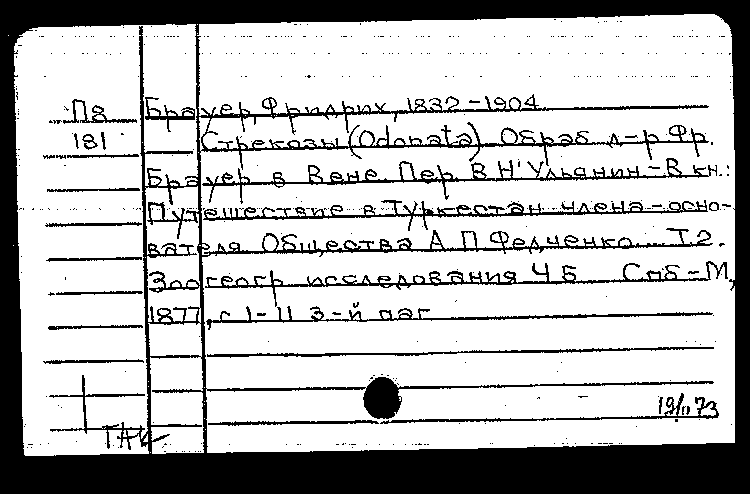 П8 Брауер, Фридрих, 1832-1904
181 Стрекозы (Odonata). Обраб. д-р Фр.
Брауер в Вене. Пер. В.Н. Ульянин.-В кн.:
Путешествие в Туркестан члена-осно-
вателя Общества А.П.Федченко. Т.2.
Зоогеогр. исследования. Ч.5. Спб-М,
1877, с.1-11 3-й паг.
73